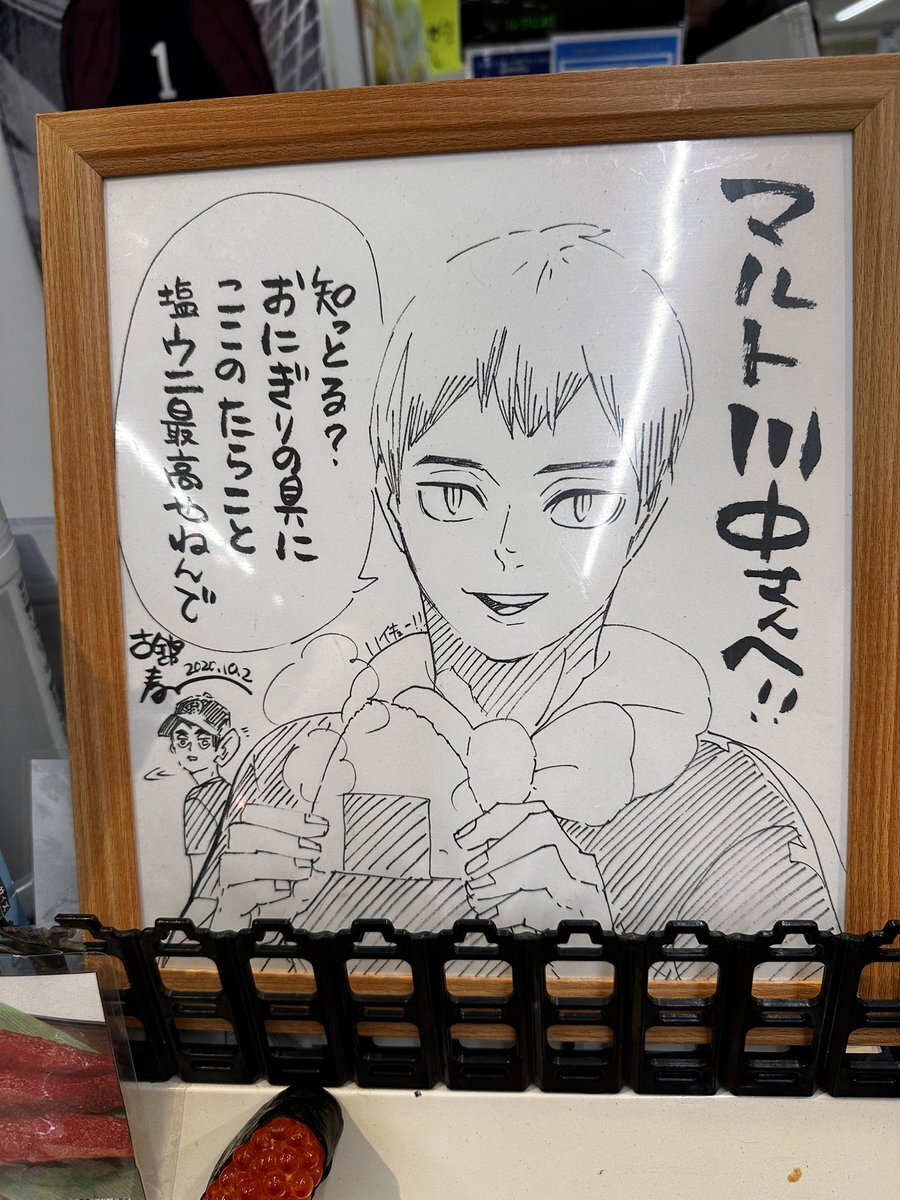 マルト川中さんへ!!
知っとる?
おにぎりの具に
ここのたらこと
塩ウニ最高やねんで
ハイキュー!!
古舘
春一
2020.10.2
1